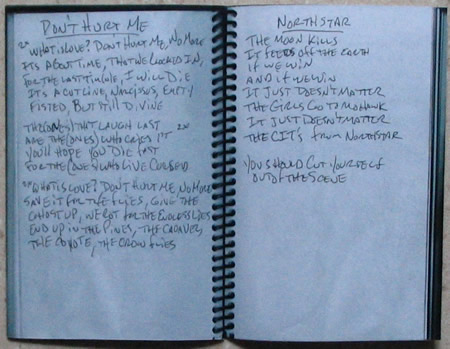 DON'T HURT ME
2x WHAT IS LOVE? DON'T HURT ME, NO MORE
IT'S ABOUT TIME, THAT WE LOCKED IN,
FOR THE LAST TIME, I WILL DIE
IT'S A CUT LINE, NARCISSUS, EMPTY
FISTED, BUT STILL DIVINE
THE(ONES) THAT LAUGH LAST 2x
ARE THE(ONES) WHO CRIES 1ST
YOU'LL HOPE YOU DIE LAST
FOR THE (ONES) WHO LIVE CURSED
2x WHAT IS LOVE? DON'T HURT ME, NO MORE
SAVE IT FOR THE FLIES, GIVE THE
GHOST UP, WE ROT FOR THE ENDLESS LIES
END UP IN THE PINES, THE CADAVERS
THE COYOTE, THE CROW FLIES
NORTHSTAR
THE MOON KILLS
IT FEEDS OFF THE EARTH
IF WE WIN
AND IF WE WIN
IT JUST DOESN'T MATTER
THE GIRLS GO TO MOHAWK
IT JUST DOESN'T MATTER
THE CIT'S FROM NORTHSTAR
YOU SHOULD CUT YOURSELF
OUT OF THE SCENE